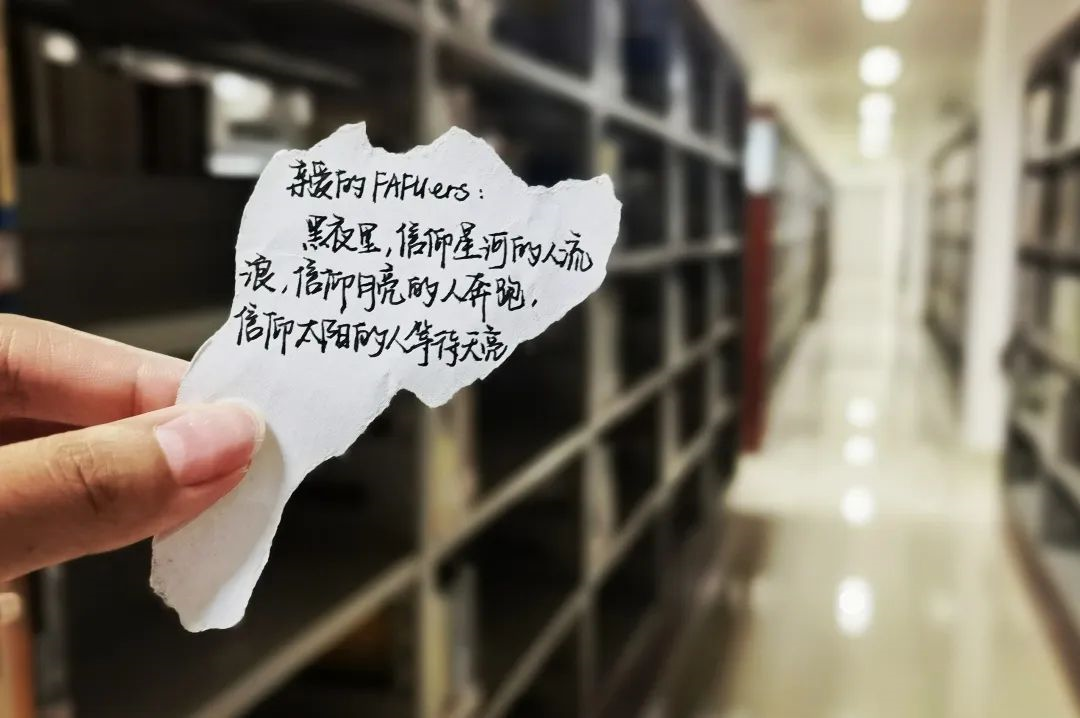 亲爱的FAFUers:
黑夜里,信仰星河的人流
浪,信仰月亮的人奔跑,
信仰太阳的人等待天亮